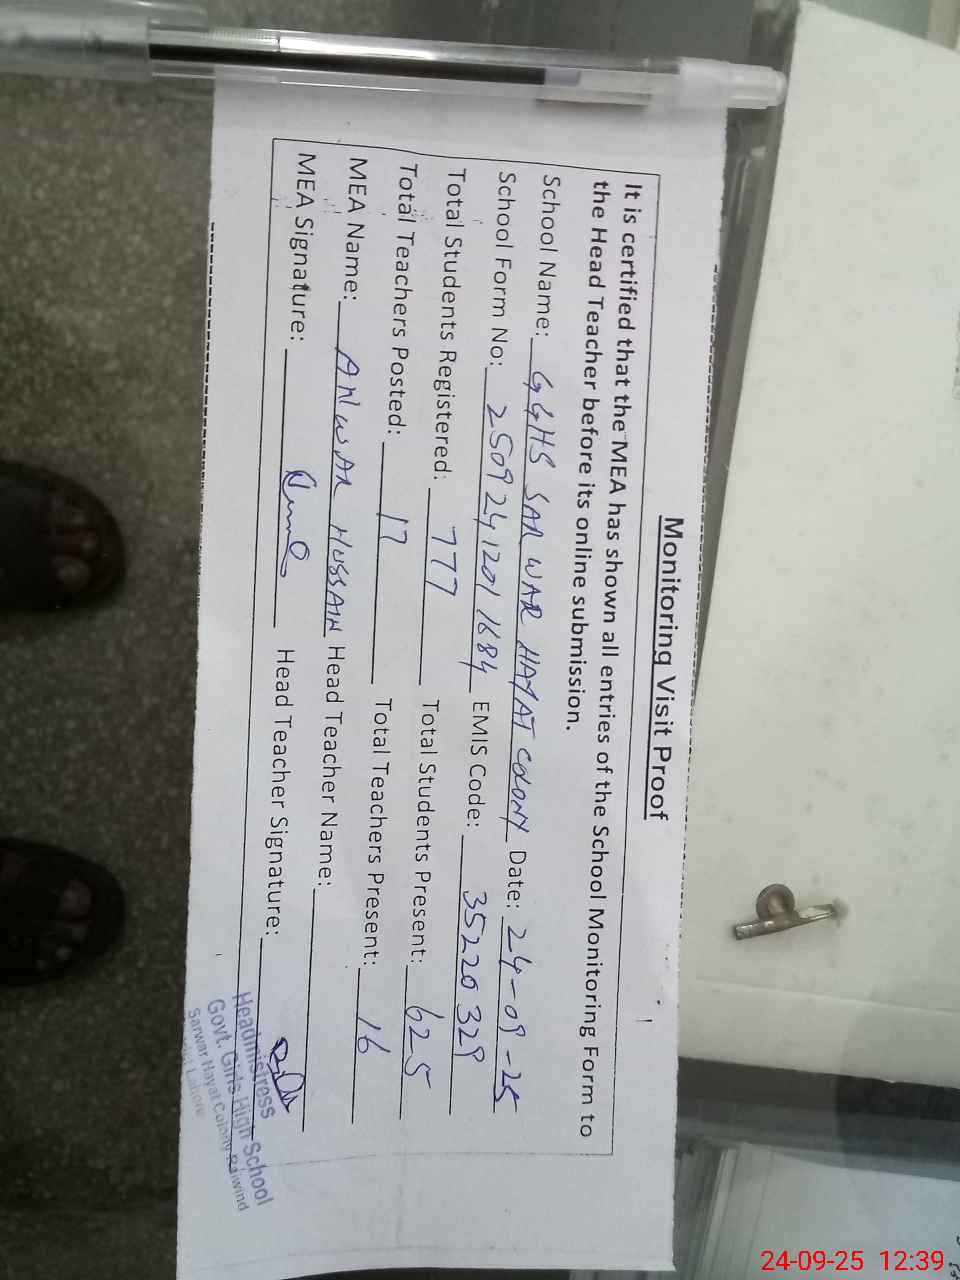 Monitoring Visit Proof
It is certified that the MEA has shown all entries of the School Monitoring Form to
the Head Teacher before its online submission.
School Name: GGHS SARWAR HAYAT COLONY Date: 24-09-25
School Form No: 2509241201 1684 EMIS Code: 35220329
Total Students Registered: 777 Total Students Present: 625
Total Teachers Posted: 17 Total Teachers Present: 16
MEA Name: ANWAR HUSSAIN Head Teacher Name:
MEA Signature: Head Teacher Signature:
Headmistress
Govt. Girls High School
Sarwar Hayat Colony Raiwind
Lahore
24-09-25 12:39